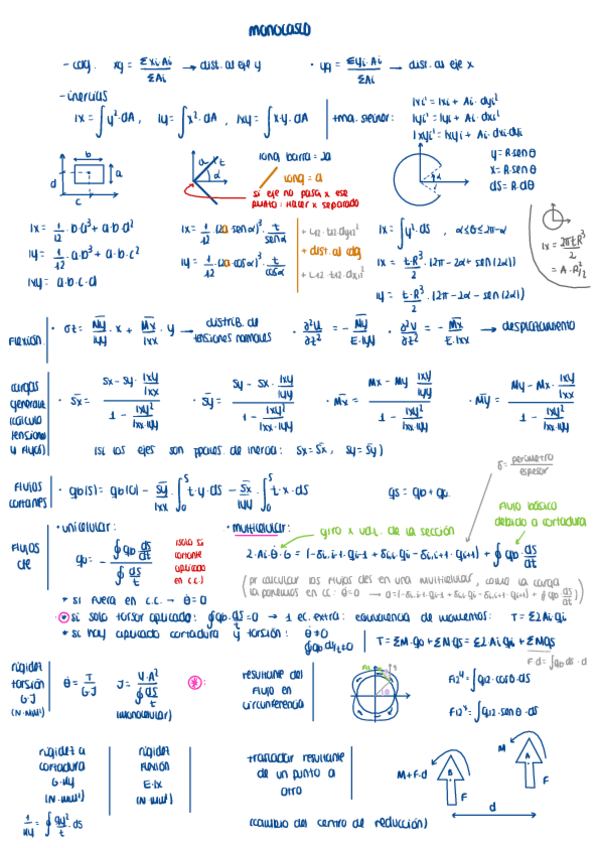 monocasco
- cdg. xg = ΣXi·Ai / ΣAi → dist. al eje y · yg = ΣYi·Ai / ΣAi → dist. al eje x
- inercias
Ix = ∫y²·dA, Iy = ∫x²·dA, Ixy = ∫x·y·dA
tma. steiner: Ixi' = Ixi + Ai·dyi²
Iyi' = Iyi + Ai·dxi²
Ixyi' = Ixyi + Ai·dxi·dyi
b
a
d
c
a
t
α
long. barra = 2a
long = a
si eje no pasa x ese punto: hacer x separado
y = R·senθ
x = R·senθ
dS = R·dθ
Ix = 1/12·b·a³ + a·b·d²
Iy = 1/12·a·b³ + a·b·c²
Ixy = a·b·c·d
Ix = 1/12·(2a·senα)³·t/senα
Iy = 1/12·(2a·cosα)³·t/cosα
+ dist. al cdg
Ix = ∫y²·dS, α≤θ≤2π-α
Ix = t·R³/2·(2π - 2α + sen(2α))
Iy = t·R³/2·(2π - 2α - sen(2α))
Ix = 2πtR³/2
= A·R²/2
Flexión
· σz = M̄y/Iyy·x + M̄x/Ixx·y → distrib. de tensiones normales · ∂²U/∂z² = -M̄y/E·Iyy · ∂²V/∂z² = -M̄x/E·Ixx → desplazamiento
cargas generaliz (cálculo tensiones y flujos)
· S̄x = (Sx - Sy·Ixy/Ixx) / (1 - Ixy²/Ixx·Iyy) · S̄y = (Sy - Sx·Ixy/Iyy) / (1 - Ixy²/Ixx·Iyy) · M̄x = (Mx - My·Ixy/Iyy) / (1 - Ixy²/Ixx·Iyy) · M̄y = (My - Mx·Ixy/Ixx) / (1 - Ixy²/Ixx·Iyy)
(si los ejes son ppales. de inercia: Sx = S̄x, Sy = S̄y)
δ = perímetro/espesor
Flujos cortantes
· qb(s) = qb(0) - S̄y/Ixx ∫₀ˢ t·y·dS - S̄x/Iyy ∫₀ˢ t·x·dS
qs = qb + q0
Flujo básico debido a cortadura
Flujos cte
· unicelular:
q0 = - ∮qb dS/t / ∮dS/t
(sólo si cortante aplicado en c.c.)
· multicelular:
giro x udl. de la sección
2·Ai·θ̇·G = (-δi,i-1·qi-1 + δi,i·qi - δi,i+1·qi+1) + ∮qb·dS/t
* si fuera en c.c. → θ̇ = 0
* si solo torsor aplicado: ∮qb·dS/t = 0 → 1 ec. extra: equivalencia de momentos: T = Σ2Ai·qi
* si hay aplicado cortadura y torsión: θ̇≠0
∮qb dS/t≠0
T = ΣM·q0 + ΣM·qs = Σ2·Ai·qi + ΣMqs
rigidez torsión G·J (N·mm²)
θ̇ = T/G·J
J = 4·A²/∮dS/t
(unicelular)
resultante del flujo en circunferencia
F12ʸ = ∫q12·cosθ·dS
F12ˣ = ∫q12·senθ·dS
rigidez a cortadura
rigidez flexión
E·Ix
(N·mm²)
1/ky = ∮qy²/t·dS
trasladar resultante de un punto a otro
(cambio del centro de reducción)
M+F·d
B
F
M
A
F
d